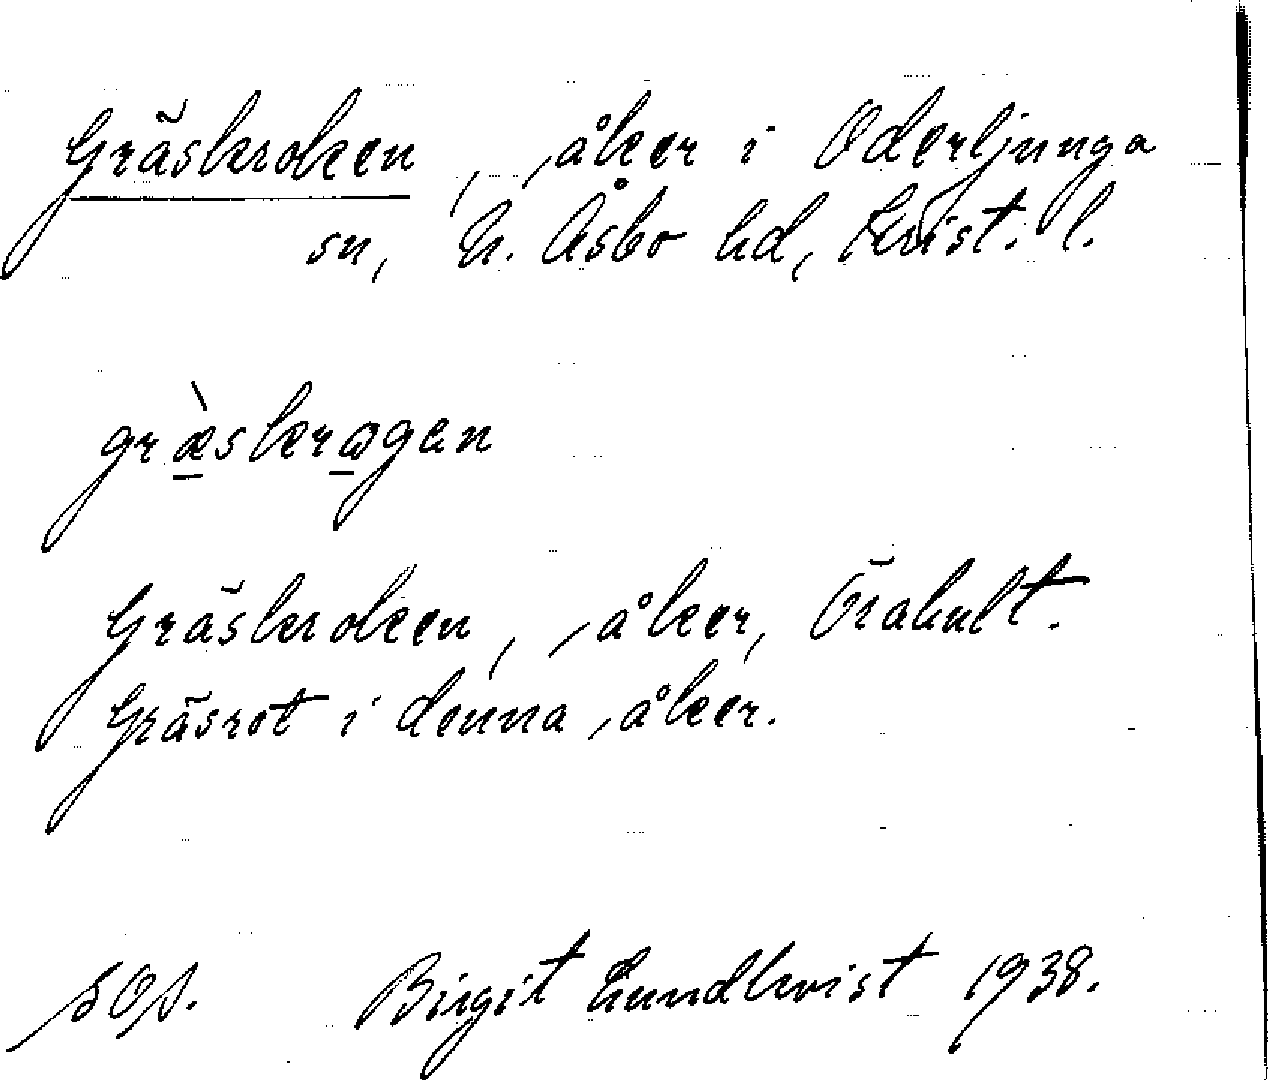 Gräskroken, åker i Oderljunga
sn, N. Åsbo hd, Krist. l.
græ̀skrogen
Gräskroken, åker, Örahult.
Gräsrot i denna åker.
Birgit Lundkvist 1938.